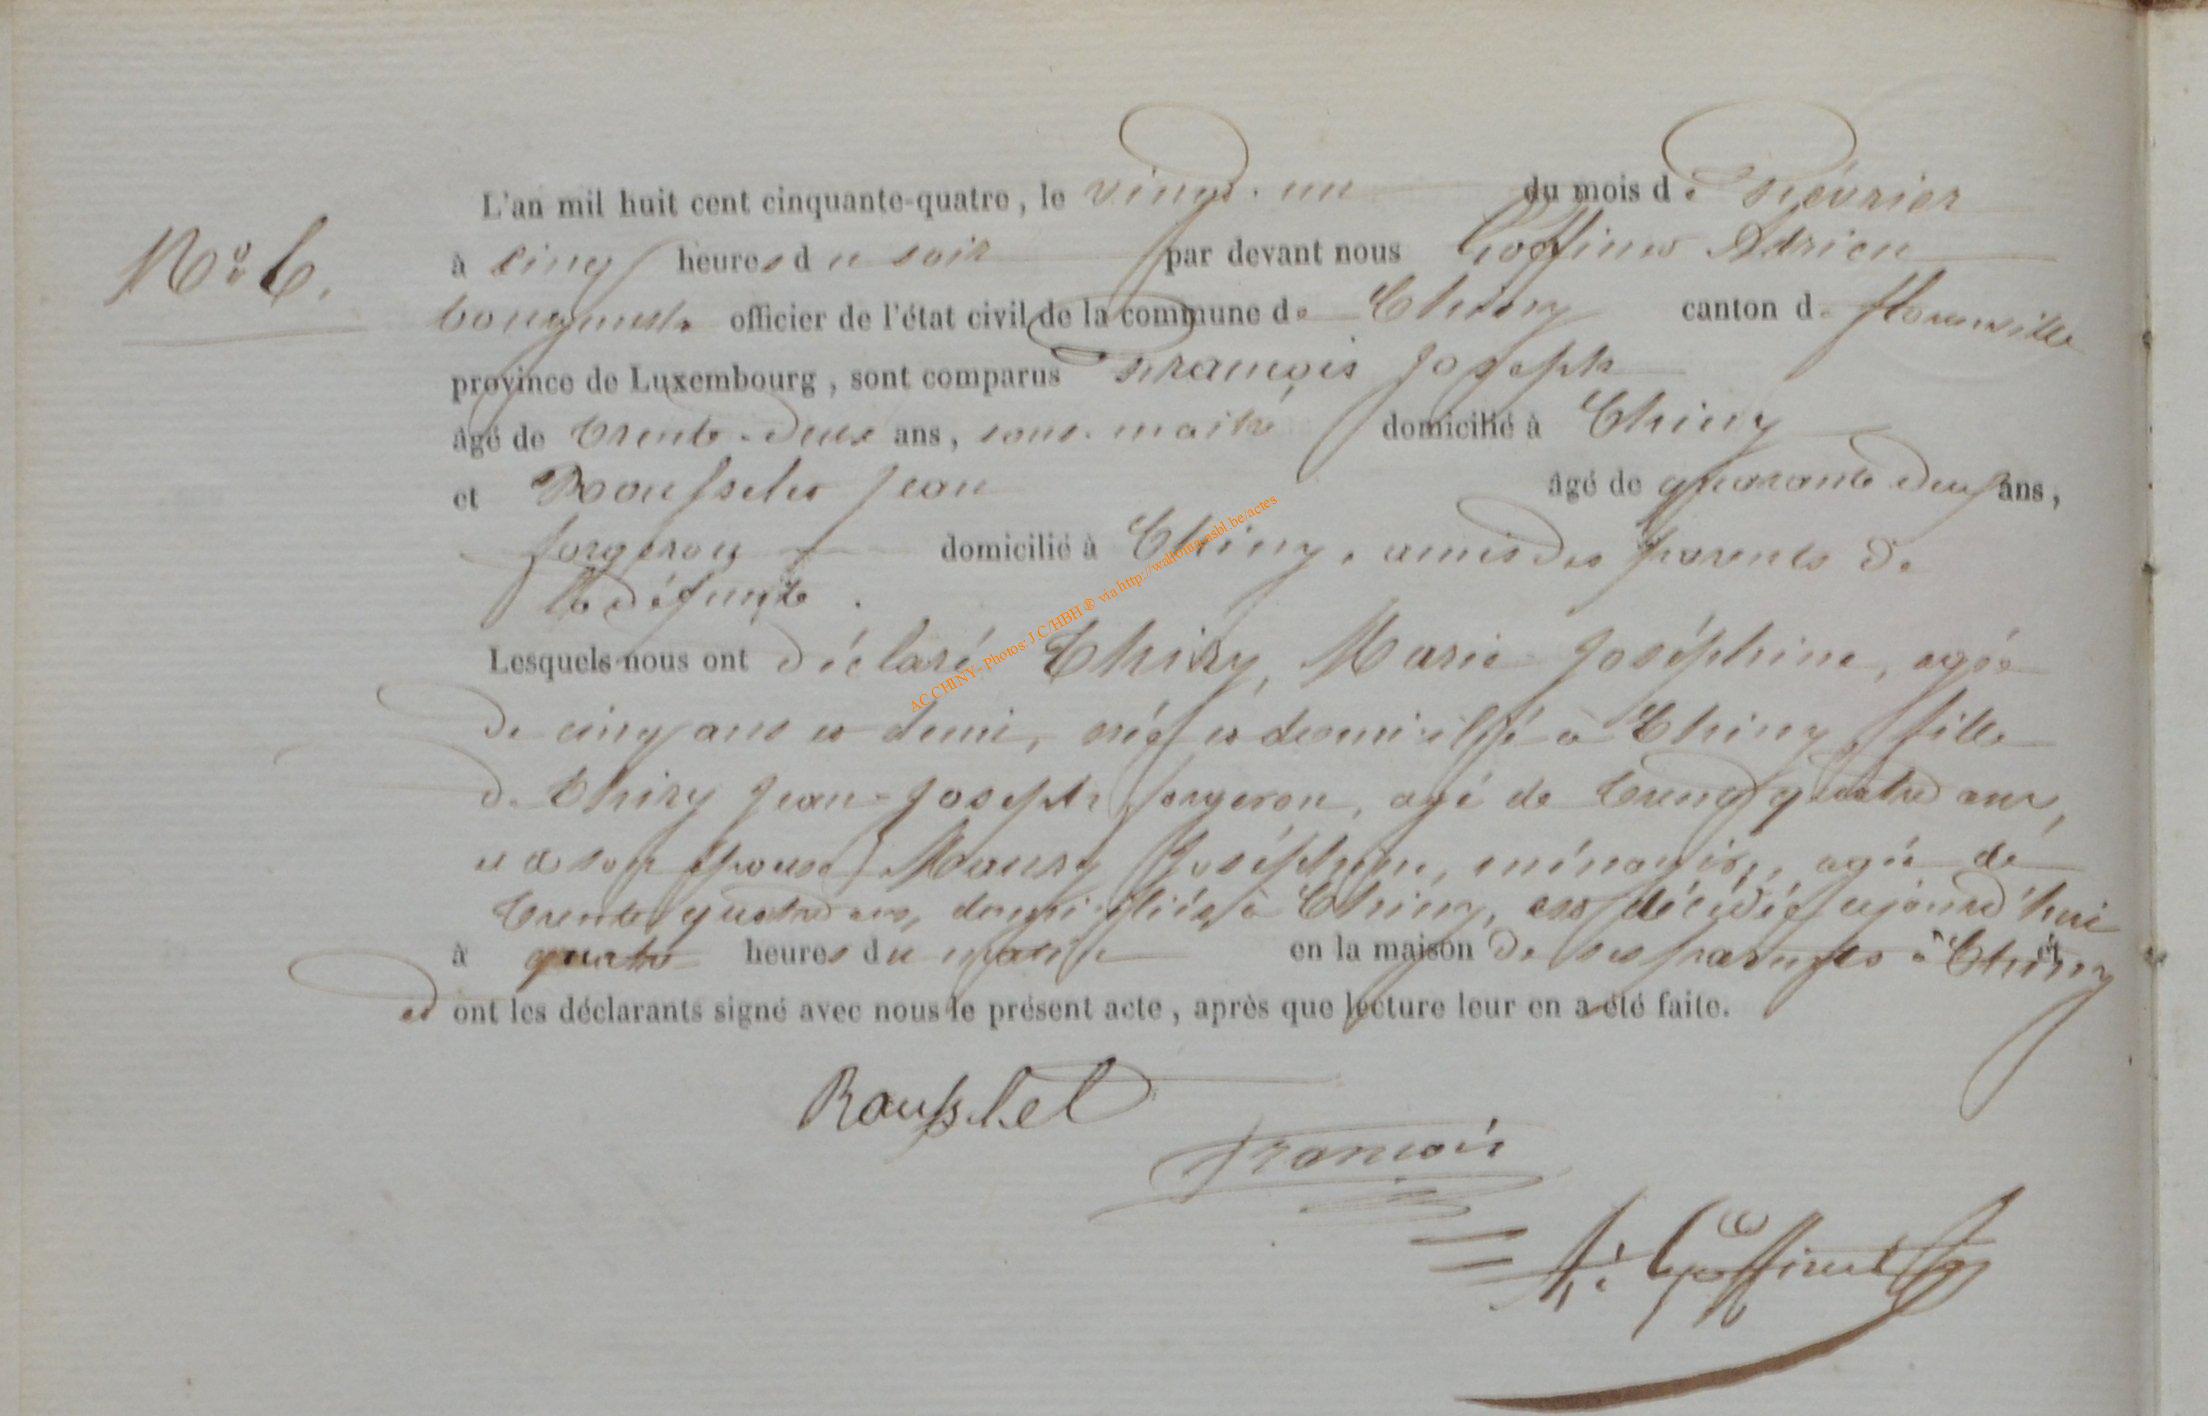 L'an mil huit cent cinquante-quatre, le vingt-un du mois de Février
N° 6.
à cinq heures du soir par devant nous Goffinet Adrien
bourgmestre officier de l'état civil de la commune de Chiny canton de florenville
province de Luxembourg, sont comparus François Joseph
âgé de trente-deux ans, sous-maitre domicilié à Chiny
et Rousselet Jean âgé de quarante deux ans,
forgeron domicilié à Chiny, amis des parents de
la défunte.
Lesquels nous ont déclaré Thiry, Marie Joséphine, agée
de cinq ans et demi, née et domiciliée à Chiny, fille
de Thiry Jean-Joseph forgeron, agé de trente quatre ans,
et de son épouse Maury Joséphine, ménagère, agée de
trente quatre ans, domiciliés à Chiny, est décédée aujourd'hui
à quatre heures du matin en la maison de ses parents à Chiny et
et ont les déclarants signé avec nous le présent acte, après que lecture leur en a été faite.
Rousslet
François
A. Goffinet
AC CHINY - Photos: J.C/HBH ® via http://waltomansbl.be/actes